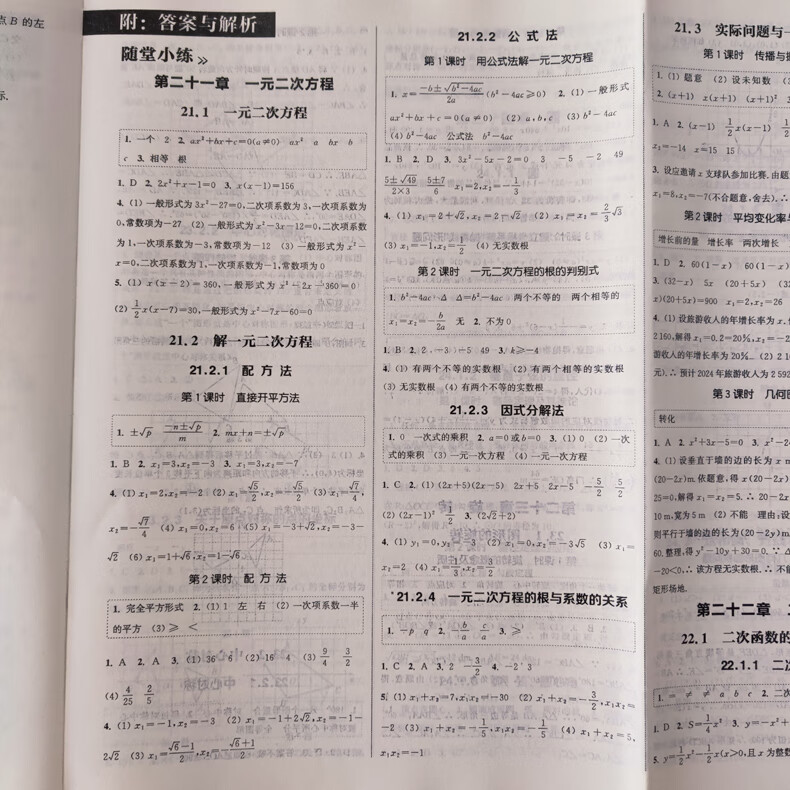 点B的左
标.
附：答案与解析
随堂小练
第二十一章 一元二次方程
21.1 一元二次方程
1. 一个 2 2. ax²+bx+c=0(a≠0) ax² a bx b
c 3. 相等 根
1. D 2. 2x²+x-1=0 3. x(x-1)=156
4. (1) 一般形式为 3x²-27=0,二次项系数为 3,一次项系数为
0,常数项为-27 (2) 一般形式为 x²-3x-12=0,二次项系数
为 1,一次项系数为-3,常数项为-12 (3) 一般形式为 x²-
x=0,二次项系数为 1,一次项系数为-1,常数项为 0
5. (1) x(x-2)=360,一般形式为 x²-2x-360=0
(2) 1/2 x(x-7)=30,一般形式为 x²-7x-60=0
21.2 解一元二次方程
21.2.1 配方法
第1课时 直接开平方法
1. ±√p (-n±√p)/m 2. mx+n=±√p
1. B 2. x₁=3,x₂=-3 3. x₁=3,x₂=-7
4. (1) x₁=2,x₂=-2 (2) x₁=√5/2,x₂=-√5/2 (3) x₁=√7/4,
x₂=-√7/4 (4) x₁=0,x₂=6 (5) x₁=-3+√2,x₂=-3-
√2 (6) x₁=1+√6,x₂=1-√6
第2课时 配方法
1. 完全平方形式 2. (1) 1 左 右 (2) 一次项系数一半
的平方 (3) ≥ <
1. A 2. A 3. (1) 36 6 (2) 16 4 (3) 9/4 3/2
(4) 4/25 2/5
4. (1) x₁=-1,x₂=-3 (2) x₁=-1+2√2,x₂=-1-
2√2 (3) x₁=(√6-1)/2,x₂=-(√6+1)/2
21.2.2 公式法
第1课时 用公式法解一元二次方程
1. x=(-b±√(b²-4ac))/2a (b²-4ac≥0) 2. (1) 一般形式
ax²+bx+c=0(a≠0) (2) a,b,c (3) b²-4ac
(4) b²-4ac 公式法 b²-4ac
1. B 2. D 3. 3x²-5x-2=0 3 -5 -2 49
(5±√49)/(2×3) (5±7)/6 x₁=2,x₂=-1/3
4. (1) x₁=2+√2,x₂=2-√2 (2) x₁=x₂=2/3 √3
(3) x₁=-1,x₂=1/2 (4) 无实数根
第2课时 一元二次方程的根的判别式
1. b²-4ac Δ Δ=b²-4ac 两个不等的 两个相等的
x₁=x₂=-b/2a 无 2. 不为0
1. B 2. 2 -3 -5 49 3. k≥-4
4. (1) 有两个不等的实数根 (2) 有两个相等的实数根
(3) 无实数根 (4) 有两个不等的实数根
21.2.3 因式分解法
1. 0 一次式的乘积 2. a=0或b=0 3. (1) 0 (2) 一次
式的乘积 (3) 一元一次方程 (4) 一元一次方程
1. C 2. (1) (2x+5)(2x-5) 2x+5 2x-5 -5/2 5/2
(2) (2x-1)² 1/2 3. (2√2+2)
4. (1) y₁=0,y₂=-3 (2) x₁=0,x₂=-3√5 (3) x₁=
x₂=2 (4) x₁=1/3,x₂=1/2
21.2.4 一元二次方程的根与系数的关系
1. -p q 2. -b/a c/a 3. ≥
1. C 2. A 3. 2 -3/2 4. -2 3
5. (1) x₁+x₂=7,x₁x₂=-30 (2) x₁+x₂=-3/2,x₁x₂=
-2 (3) x₁+x₂=-1/5,x₁x₂=-1/5 (4) x₁+x₂=5,
x₁x₂=-1
21.3 实际问题与一
第1课时 传播与
1. (1) 题意 (2) 设未知数 (3)
2. (x+1) x(x+1) (x+1)²
1. A 2. (x-1) 1/2 x(x-1)
x₂=-14 x=15 15
3. 设应邀请 x 支球队参加比赛.由题
x₁=8,x₂=-7(不合题意,舍去).
第2课时 平均变化率与
增长前的量 增长率 两次增长
1. D 2. 60(1-x) 60(1-x)
3. (32-x) 5x (20+5x)
x)(20+5x)=900 x₁=2,x₂=26
4. (1) 设旅游收入的年增长率为 x.
2160,解得 x₁=0.2=20%,x₂=-2
游收入的年增长率为 20%. (2) 2
元).∴预计2024年旅游收入为2592
第3课时 几何图
转化
1. A 2. x²+3x-5=0 3. x²-2
4. (1) 设垂直于墙的边的长为 x m
(20-2x)m.依题意,得 x(20-2x)
25=0,解得 x₁=x₂=5.∴20-2x
10 m,宽为 5 m (2) 不能 理由:设
则平行于墙的边的长为(20-2y)m.
60.整理,得 y²-10y+30=0.∵Δ
-20<0,∴该方程无实数根.∴不能
矩形场地.
第二十二章
22.1 二次函数的
22.1.1 二次
1. = ≠ ≠ a b c 2. 二次
1. D 2. S=1/4 x² 3. y=-x²+
5. y=1/2 x²-1/2 x(x>0,且x为整数